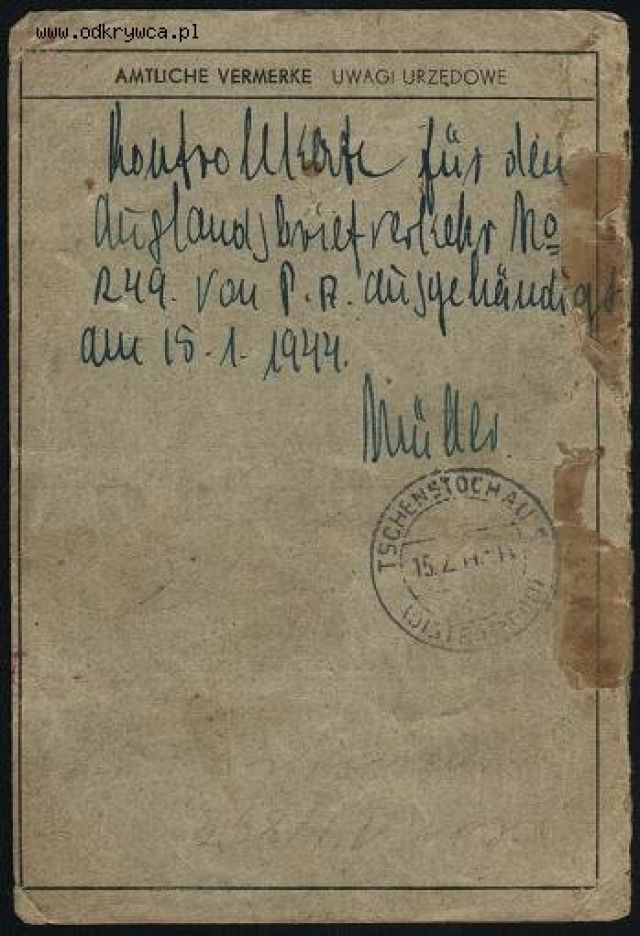 www.odkrywca.pl
AMTLICHE VERMERKE UWAGI URZĘDOWE
Kontrollkarte für den
Auslandsbriefverkehr No
249. von P. A. ausgehändigt
am 15.1.1944.
Müller.
TSCHENSTOCHAU
15.2.